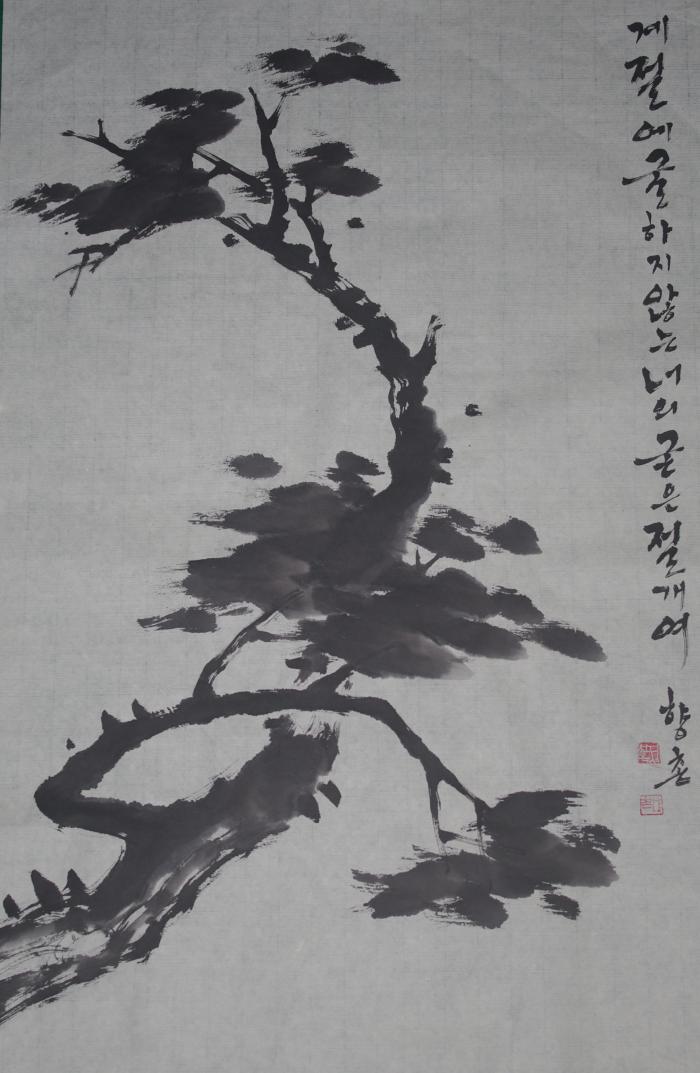 계절에굴하지않는너의굳은절개여
향촌